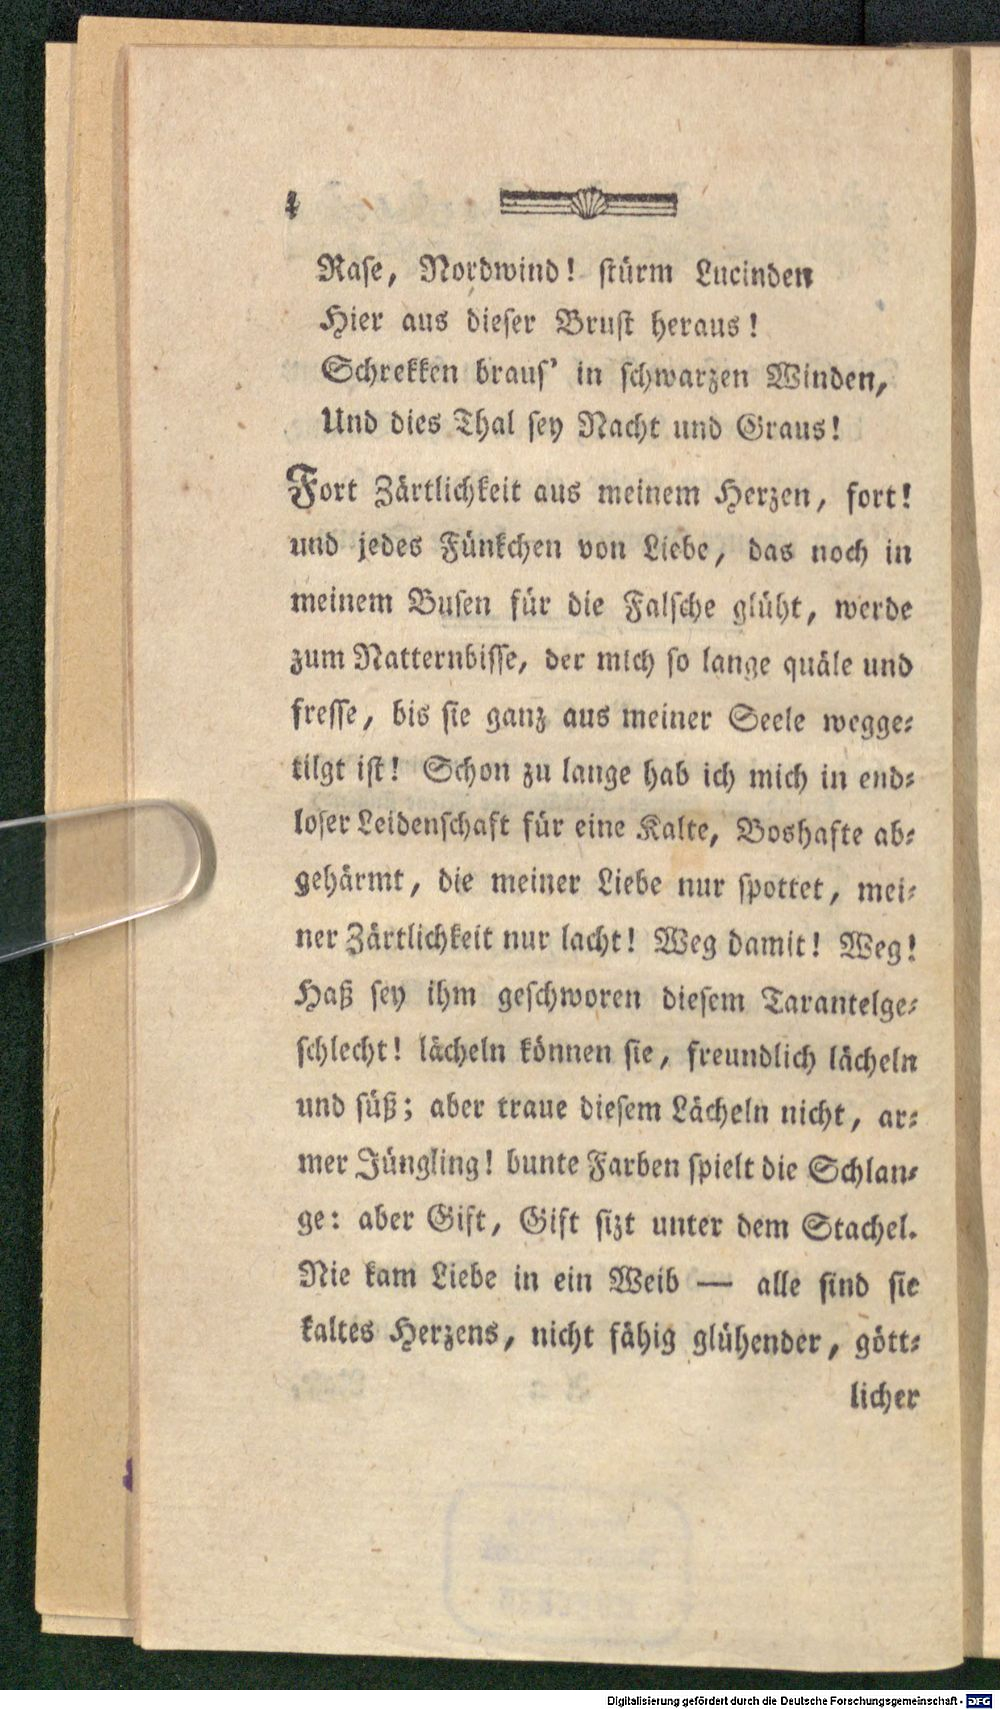 4
Rase, Nordwind! stürm Lucinden
Hier aus dieser Brust heraus!
Schrekken braus' in schwarzen Winden,
Und dies Thal sey Nacht und Graus!
Fort Zärtlichkeit aus meinem Herzen, fort!
und jedes Fünkchen von Liebe, das noch in
meinem Busen für die Falsche glüht, werde
zum Natternbisse, der mich so lange quäle und
fresse, bis sie ganz aus meiner Seele wegge-
tilgt ist! Schon zu lange hab ich mich in end-
loser Leidenschaft für eine Kalte, Boshafte ab-
gehärmt, die meiner Liebe nur spottet, mei-
ner Zärtlichkeit nur lacht! Weg damit! Weg!
Haß sey ihm geschworen diesem Tarantelge-
schlecht! lächeln können sie, freundlich lächeln
und süß; aber traue diesem Lächeln nicht, ar-
mer Jüngling! bunte Farben spielt die Schlan-
ge: aber Gift, Gift sizt unter dem Stachel.
Nie kam Liebe in ein Weib — alle sind sie
kaltes Herzens, nicht fähig glühender, gött-
licher
Digitalisierung gefördert durch die Deutsche Forschungsgemeinschaft - DFG